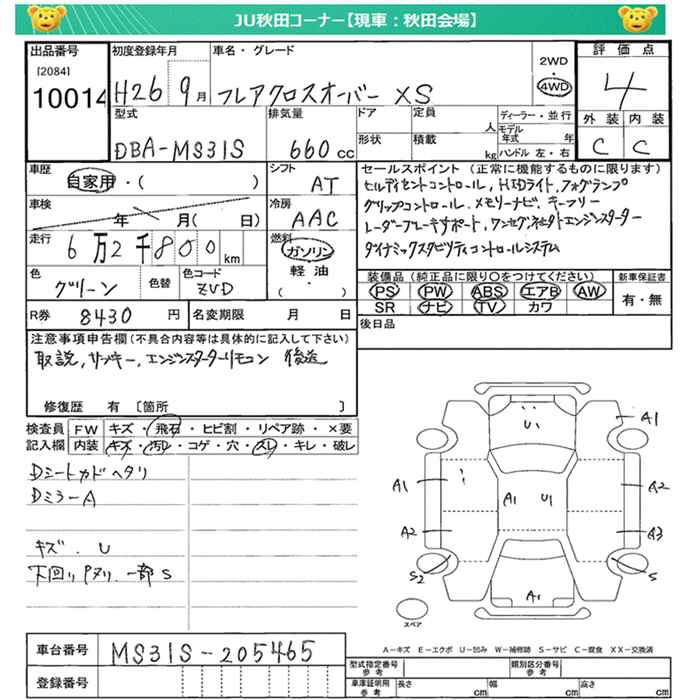 JU秋田コーナー【現車：秋田会場】
出品番号
[2084]
10014
初度登録年月
H26 9月
車名・グレード
フレアクロスオーバー XS
2WD
・
4WD
評価点
4
外装 内装
C C
型式
DBA-MS31S
排気量
660 cc
ドア
形状
定員
人
積載
kg
ディーラー・並行
モデル年式 年
ハンドル 左・右
車歴
自家用・( )
シフト
AT
車検
年 月( 日)
冷房
AAC
走行
6万2千800km
燃料
ガソリン
軽油
・
( )
色
グリーン
色替
色コード
ZVD
R券 8430 円
名変期限 月 日
セールスポイント(正常に機能するものに限ります)
ヒルディセントコントロール, HIDライト, フォグランプ
グリップコントロール, メモリーナビ, キーフリー
レーダーブレーキサポート, ワンセグ,
エンジンスターター
ダイナミックスタビリティコントロールシステム
装備品(純正品に限り○をつけてください)
PS PW ABS エアB AW
SR ナビ TV カワ
新車保証書
有・無
後日品
注意事項申告欄(不具合内容等は具体的に記入して下さい)
取説, サブキー, エンジンスターターリモコン 後送
修復歴 有 〔箇所 〕
検査員
記入欄
FW キズ・飛石・ヒビ割・リペア跡・×要
内装 キズ・汚レ・コゲ・穴・スレ・キレ・破レ
Dシートカドヘタリ
DミラーA
キズ. U
下回りPヌリ. 一部S
U1
A1
A1
A2
A1 U1
A2
A3
S2
S
A1
スペア
A－キズ E－エクボ U－凹み W－補修跡 S－サビ C－腐食 XX－交換済
車台番号
MS31S-205465
登録番号
型式指定番号
参考
類別区分番号
参考
車庫証明用
参考
長さ cm
幅 cm
高さ cm